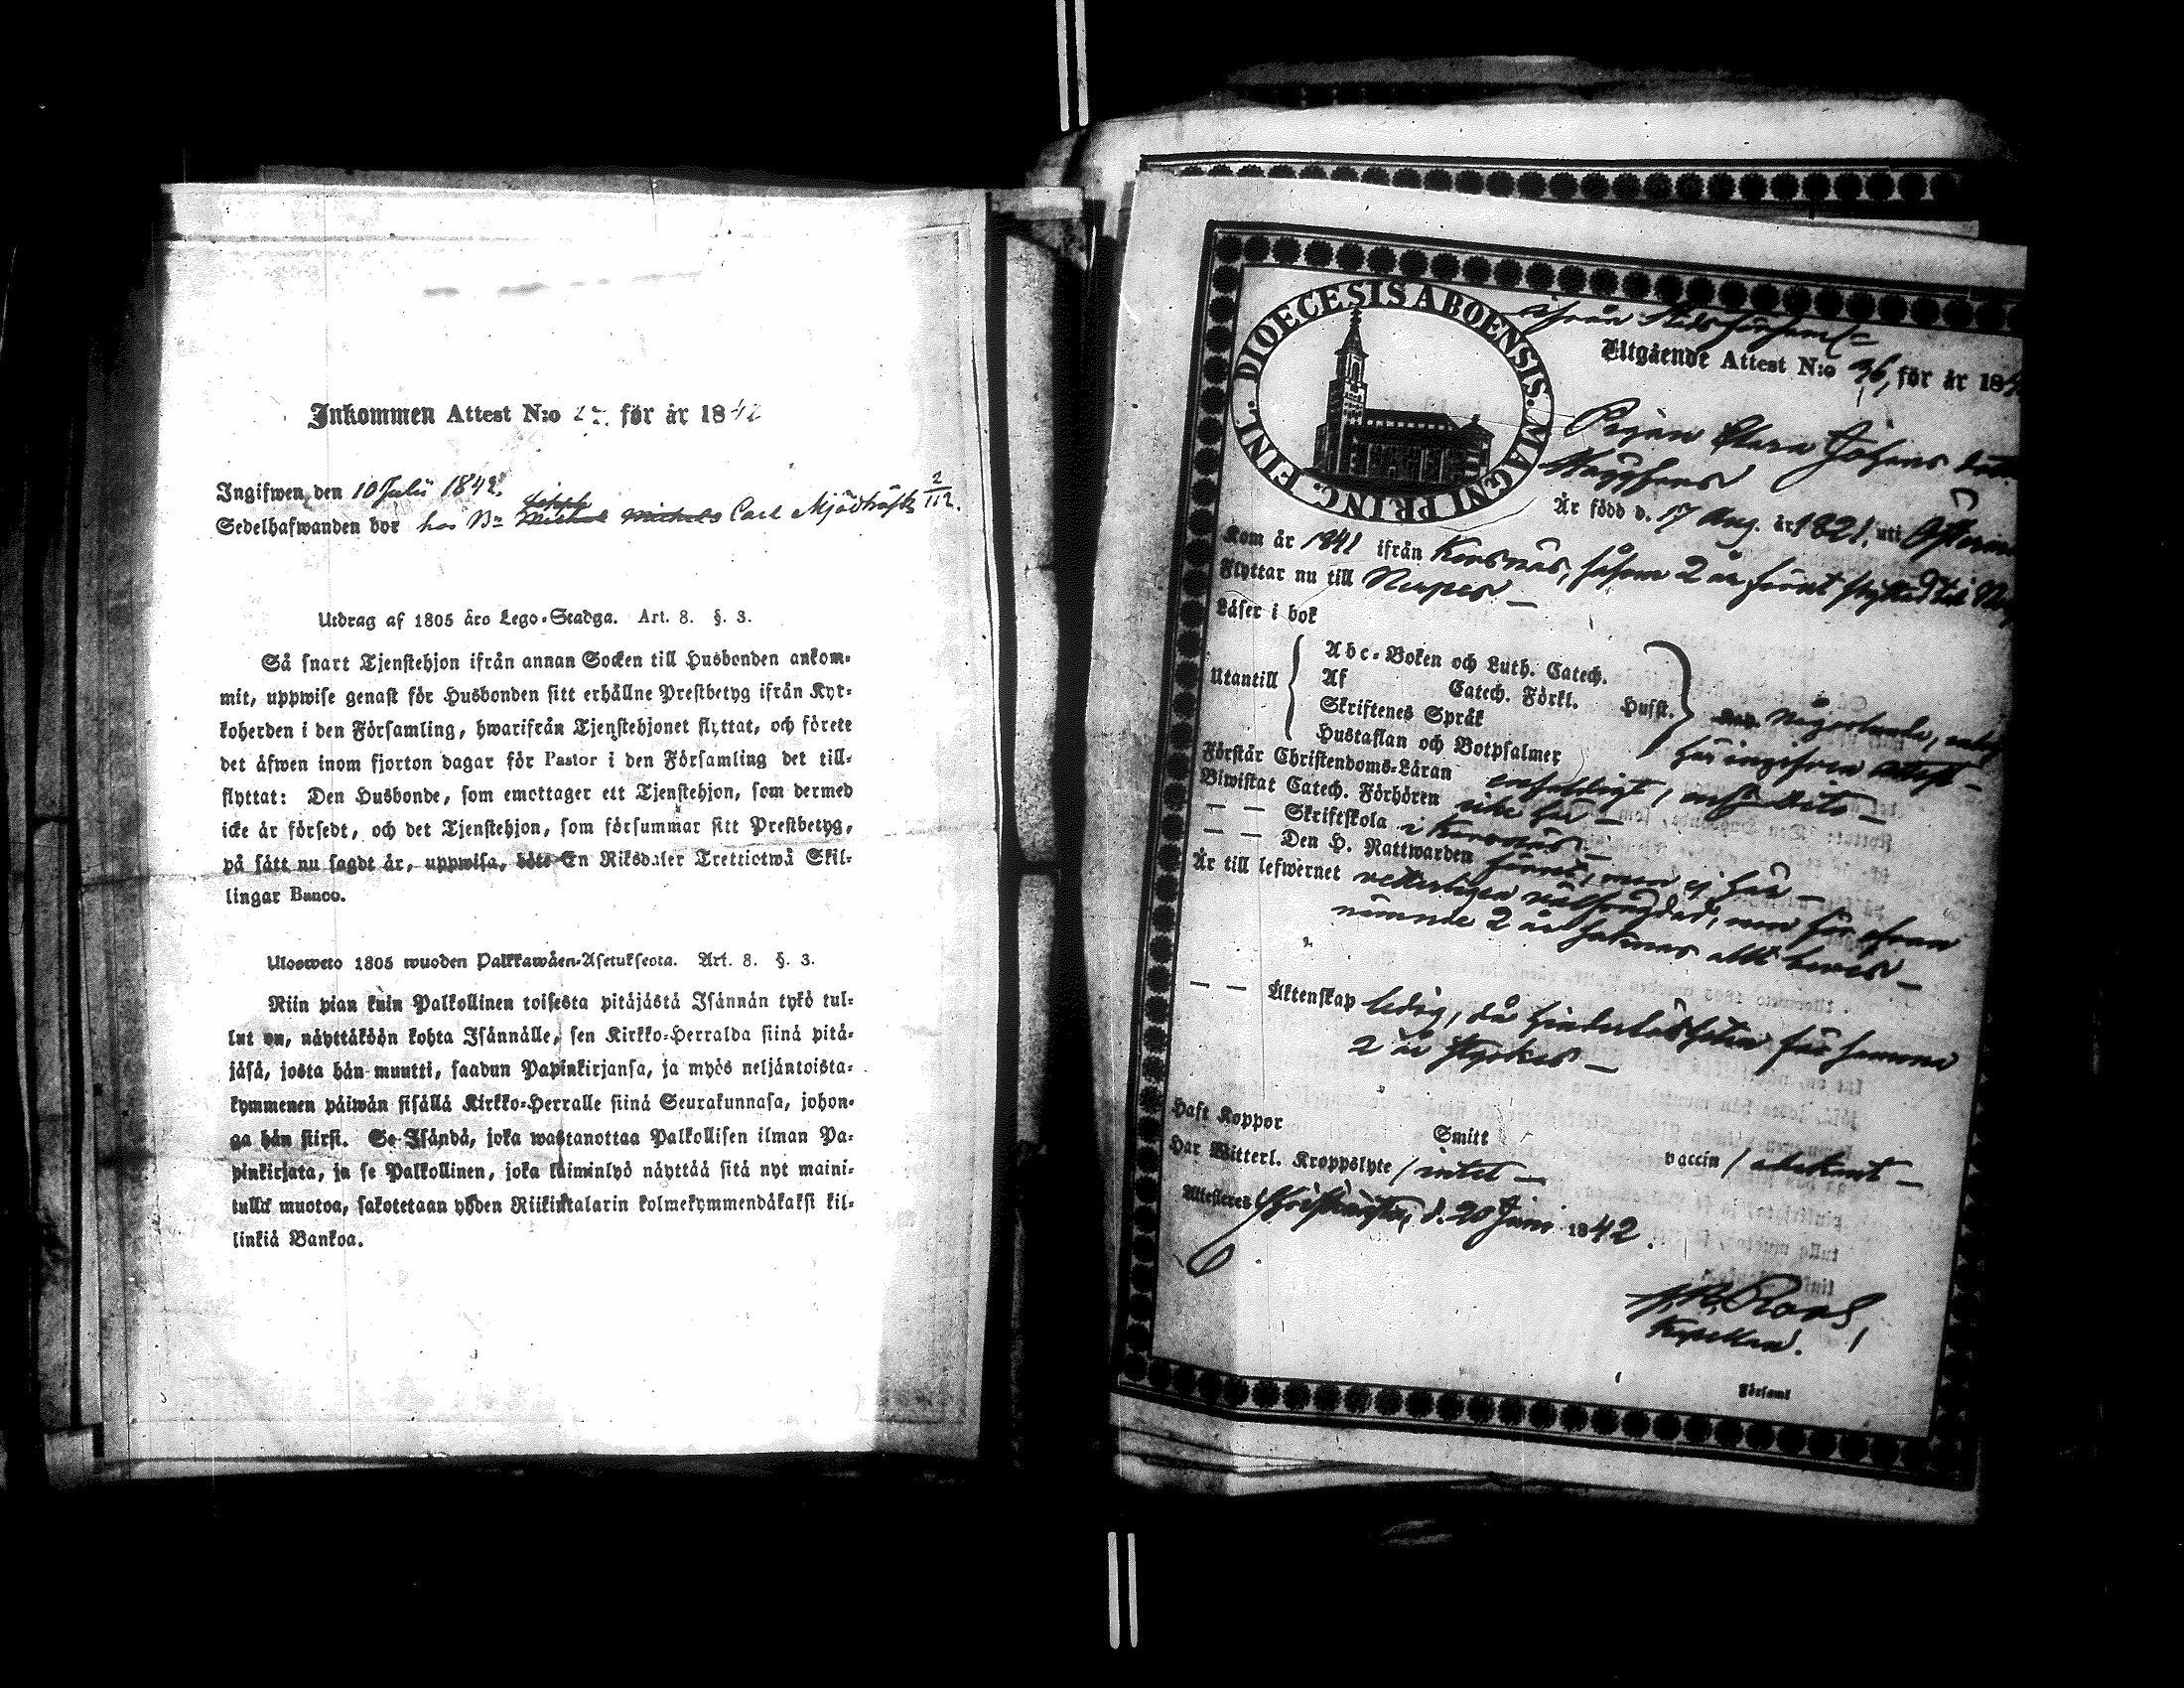 Inkommen Attest N:o för år 1842
Ingifwen den 10 Julii 1842.
Sedelhafwanden bor hos Bn Carl Mjödträsk 2/112.
Utdrag af 1805 åro Lego-Stadga. Art. 8. §. 3.
Så snart Tjenstehjon ifrån annan Socken till Husbonden ankom-
mit, uppwise genast för Husbonden sitt erhållne Prestbetyg ifrån Kyr-
koherden i den Församling, hwarifrån Tjenstehjonet flyttat, och förete
det åfwen inom fjorton dagar för Pastor i den Församling det till-
flyttat: Den Husbonde, som emottager ett Tjenstehjon, som dermed
icke år försedt, och det Tjenstehjon, som försummar sitt Prestbetyg,
på sått nu sagdt år, uppwisa, böte En Riksdaler Trettiotwå Skil-
lingar Banco.
Uloswето 1805 wuoden Palkkawåen-Asetuksesta. Art. 8. §. 3.
Niin pian kuin Palkollinen toisesta pitåjåstå Isånnån tykö tul-
lut on, nåyttåköön kohta Isånnålle, sen Kirkko-Herralda siinå pitå-
jåså, josta hån muutti, saadun Papinkirjansa, ja myös neljåntoista-
kymmenen påiwån sisållå Kirkko-Herralle siinå Seurakunnasa, johon-
ga hån siirsi. Se Isåndå, joka wastanottaa Palkollisen ilman Pa-
pinkirjata, ja se Palkollinen, joka laiminlyö nåyttåå sitå nyt maini-
tulla muotoa, sakotetaan yhden Riikintalarin kolmekymmendåkaksi kil-
linkiå Bankoa.
DIOECESIS ABOENSIS. MAGNI PRINC. FINL.
ifrån
Utgående Attest N:o 36, för år 18
Pigan Clara Johans dotter
År född d. 17 Aug. år 1821, uti
Kom år 1841 ifrån Korsnäs, såsom 2 år förut flyttad till
Flyttar nu till Nerpes —
Låser i bok
Utantill
Abc-Boken och Luth. Catech.
Af Catech. Förkl. Husst.
Skriftenes Språk
Hustaflan och Botpsalmer
Någorlunda, enligt
här ingifven attest —
Förstår Christendoms-Låran enfaldigt, enl. dito —
Biwistat Catech. Förhören icke här —
— — Skriftskola i Korsnäs —
— — Den H. Nattwarden förut, men ej här —
År till lefwernet veterligen välfrägdad, men för ofvan
nämnde 2 år saknas allt bevis —
— — Åktenskap ledig, då hinderslösheten för samma
2 år styrkes —
Haft Koppor Smitt vaccin / obekant —
Har Witterl. Kroppslyte / intet —
Attesteras d. 20 Juni 1842.
Kapellan.
Församl